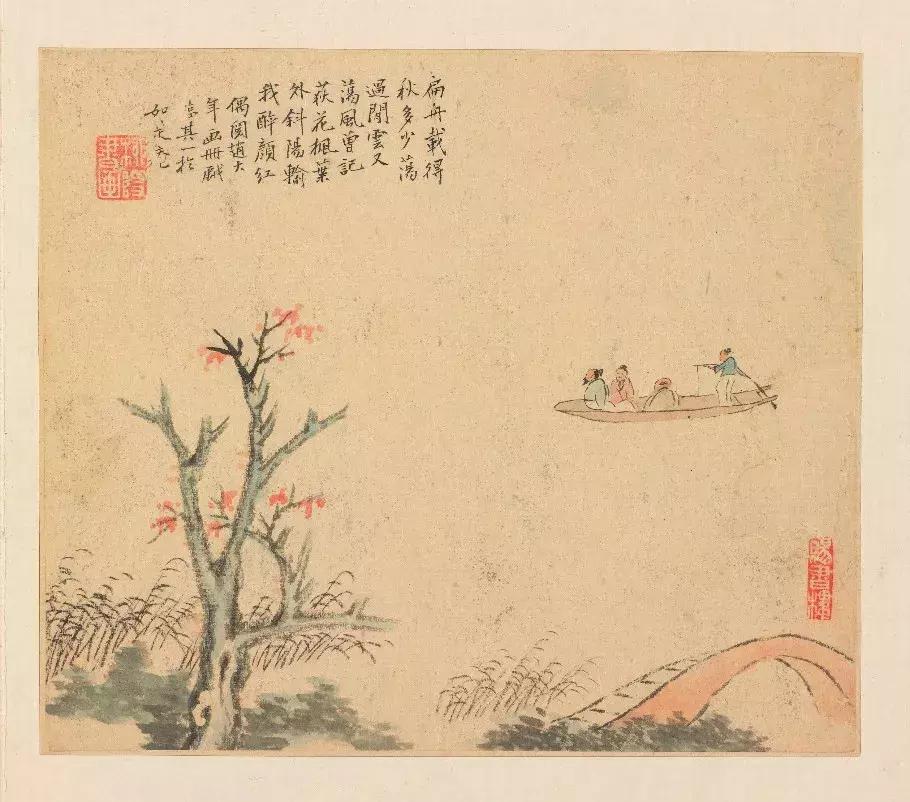 扁舟載得
秋多少蕩
過閒雲又
蕩風曾記
荻花楓葉
外斜陽輸
我醉顏紅
偶閱趙大
年画冊戲
其一於
如
賜書樓